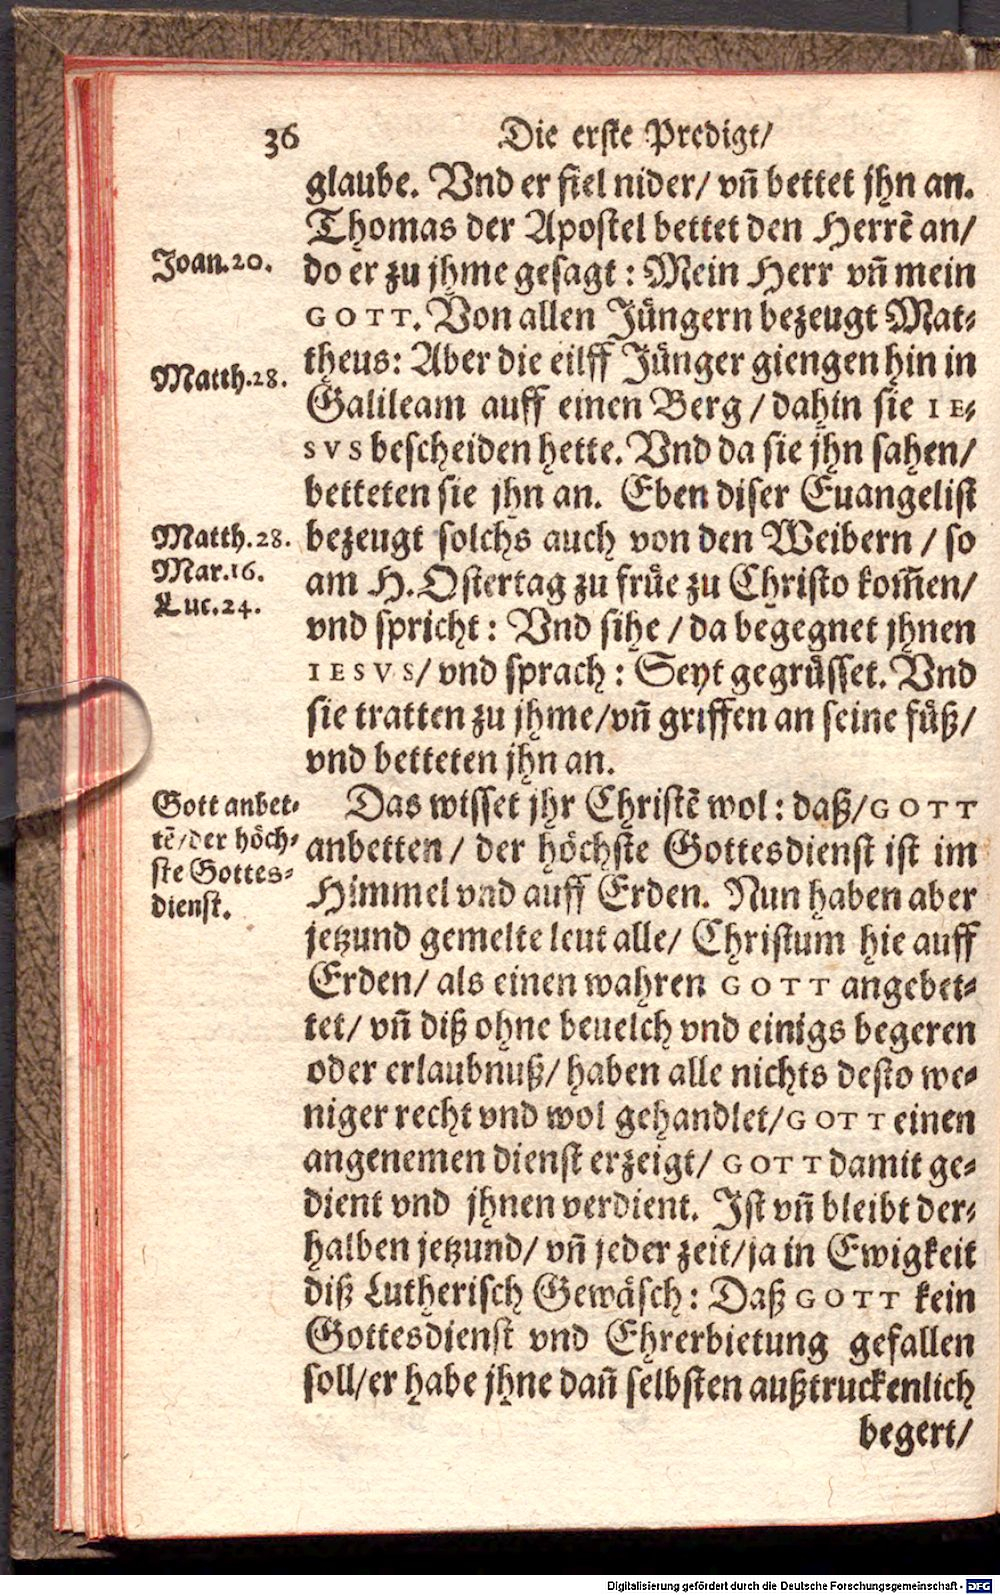 36 Die erste Predigt/
glaube. Vnd er fiel nider/ vñ bettet jhn an.
Thomas der Apostel bettet den Herrẽ an/
Joan.20.
do er zu jhme gesagt: Mein Herr vñ mein
GOTT. Von allen Jüngern bezeugt Mat-
theus: Aber die eilff Jünger giengen hin in
Matth.28.
Galileam auff einen Berg/ dahin sie IE-
SVS bescheiden hette. Vnd da sie jhn sahen/
betteten sie jhn an. Eben diser Euangelist
Matth.28.
bezeugt solchs auch von den Weibern/ so
Mar.16.
am H. Ostertag zu früe zu Christo kom̃en/
Luc.24.
vnd spricht: Vnd sihe/ da begegnet jhnen
IESVS/ vnd sprach: Seyt gegrüsset. Vnd
sie tratten zu jhme/ vñ griffen an seine füß/
vnd betteten jhn an.
Gott anbet-
tẽ/der höch-
ste Gottes-
dienst.
Das wisset jhr Christẽ wol: daß/ GOTT
anbetten/ der höchste Gottesdienst ist im
Himmel vnd auff Erden. Nun haben aber
jetzund gemelte leut alle/ Christum hie auff
Erden/ als einen wahren GOTT angebet-
tet/ vñ diß ohne beuelch vnd einigs begeren
oder erlaubnuß/ haben alle nichts desto we-
niger recht vnd wol gehandlet/ GOTT einen
angenemen dienst erzeigt/ GOTT damit ge-
dient vnd jhnen verdient. Ist vñ bleibt der-
halben jetzund/ vñ jeder zeit/ ja in Ewigkeit
diß Lutherisch Gewäsch: Daß GOTT kein
Gottesdienst vnd Ehrerbietung gefallen
soll/ er habe jhne dañ selbsten außtruckenlich
begert/
Digitalisierung gefördert durch die Deutsche Forschungsgemeinschaft - DFG